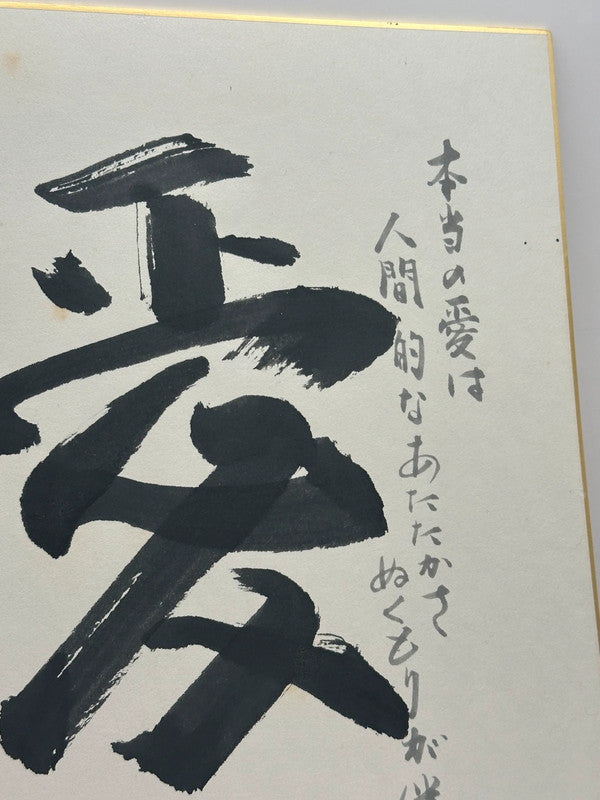 本当の愛は
人間的なあたたかさ
ぬくもりが
愛